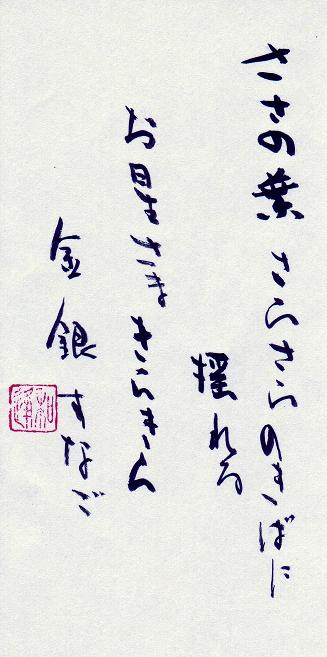 ささの葉 さらさら のきばに
揺れる
お星さま きらきら
金銀すなご